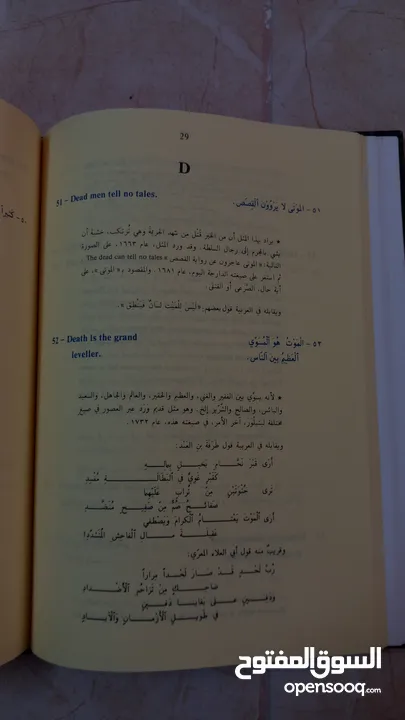 29
D
51 - Dead men tell no tales.
٥١ - الموتى لا يَرْوُونَ القِصَصَ.
* يراد بهذا المثل أن من الخير قتل من شهد الجريمة وهي تُرتكب، خشية أن
يشي بالمجرم إلى رجال السلطة. وقد ورد المثل، عام ١٦٦٣، على الصورة
التالية: «الموتى عاجزون عن رواية القصص The dead can tell no tales»
ثم استقر على صيغته الدارجة اليوم، عام ١٦٨١. والمقصود بـ«الموتى»، على
أية حال، الصرعى أو القتلى.
ويقابله في العربية قول بعضهم: «ليس للميّت لسانٌ فينطق».
52 - Death is the grand
leveller.
٥٢ - المَوْتُ هو المُسَوِّي
العظيمُ بين الناس.
* لأنه يسوّي بين الفقير والغني، والعظيم والحقير، والعالم والجاهل، والسعيد
والبائس، والصالح والشرّير إلخ. وهو مثل قديم ورد عبر العصور في صيغ
مختلفة لتتبلور، آخر الأمر، في صيغته هذه، عام ١٧٣٢.
ويقابله في العربية قول طَرَفَة بن العبد:
أرى قبرَ نحّامٍ بخيلٍ بمالِهِ
كقبرِ غويٍّ في البطالةِ مُفسِدِ
ترى جُثوتين من ترابٍ عليهما
صفائحُ صُمٌّ من صفيحٍ مُنضَّدِ
أرى الموتَ يعتامُ الكرامَ ويصطفي
عقيلةَ مالِ الفاحشِ المتشدِّدِ
وقريبٌ منه قول أبي العلاء المعرّي:
رُبَّ لَحْدٍ قد صار لَحْداً مِراراً
ضاحكٍ من تزاحُمِ الأضدادِ
ودفينٍ على بقايا دفينٍ
في طويلِ الأزمانِ والآبادِ
السوق المفتوح
opensooq.com